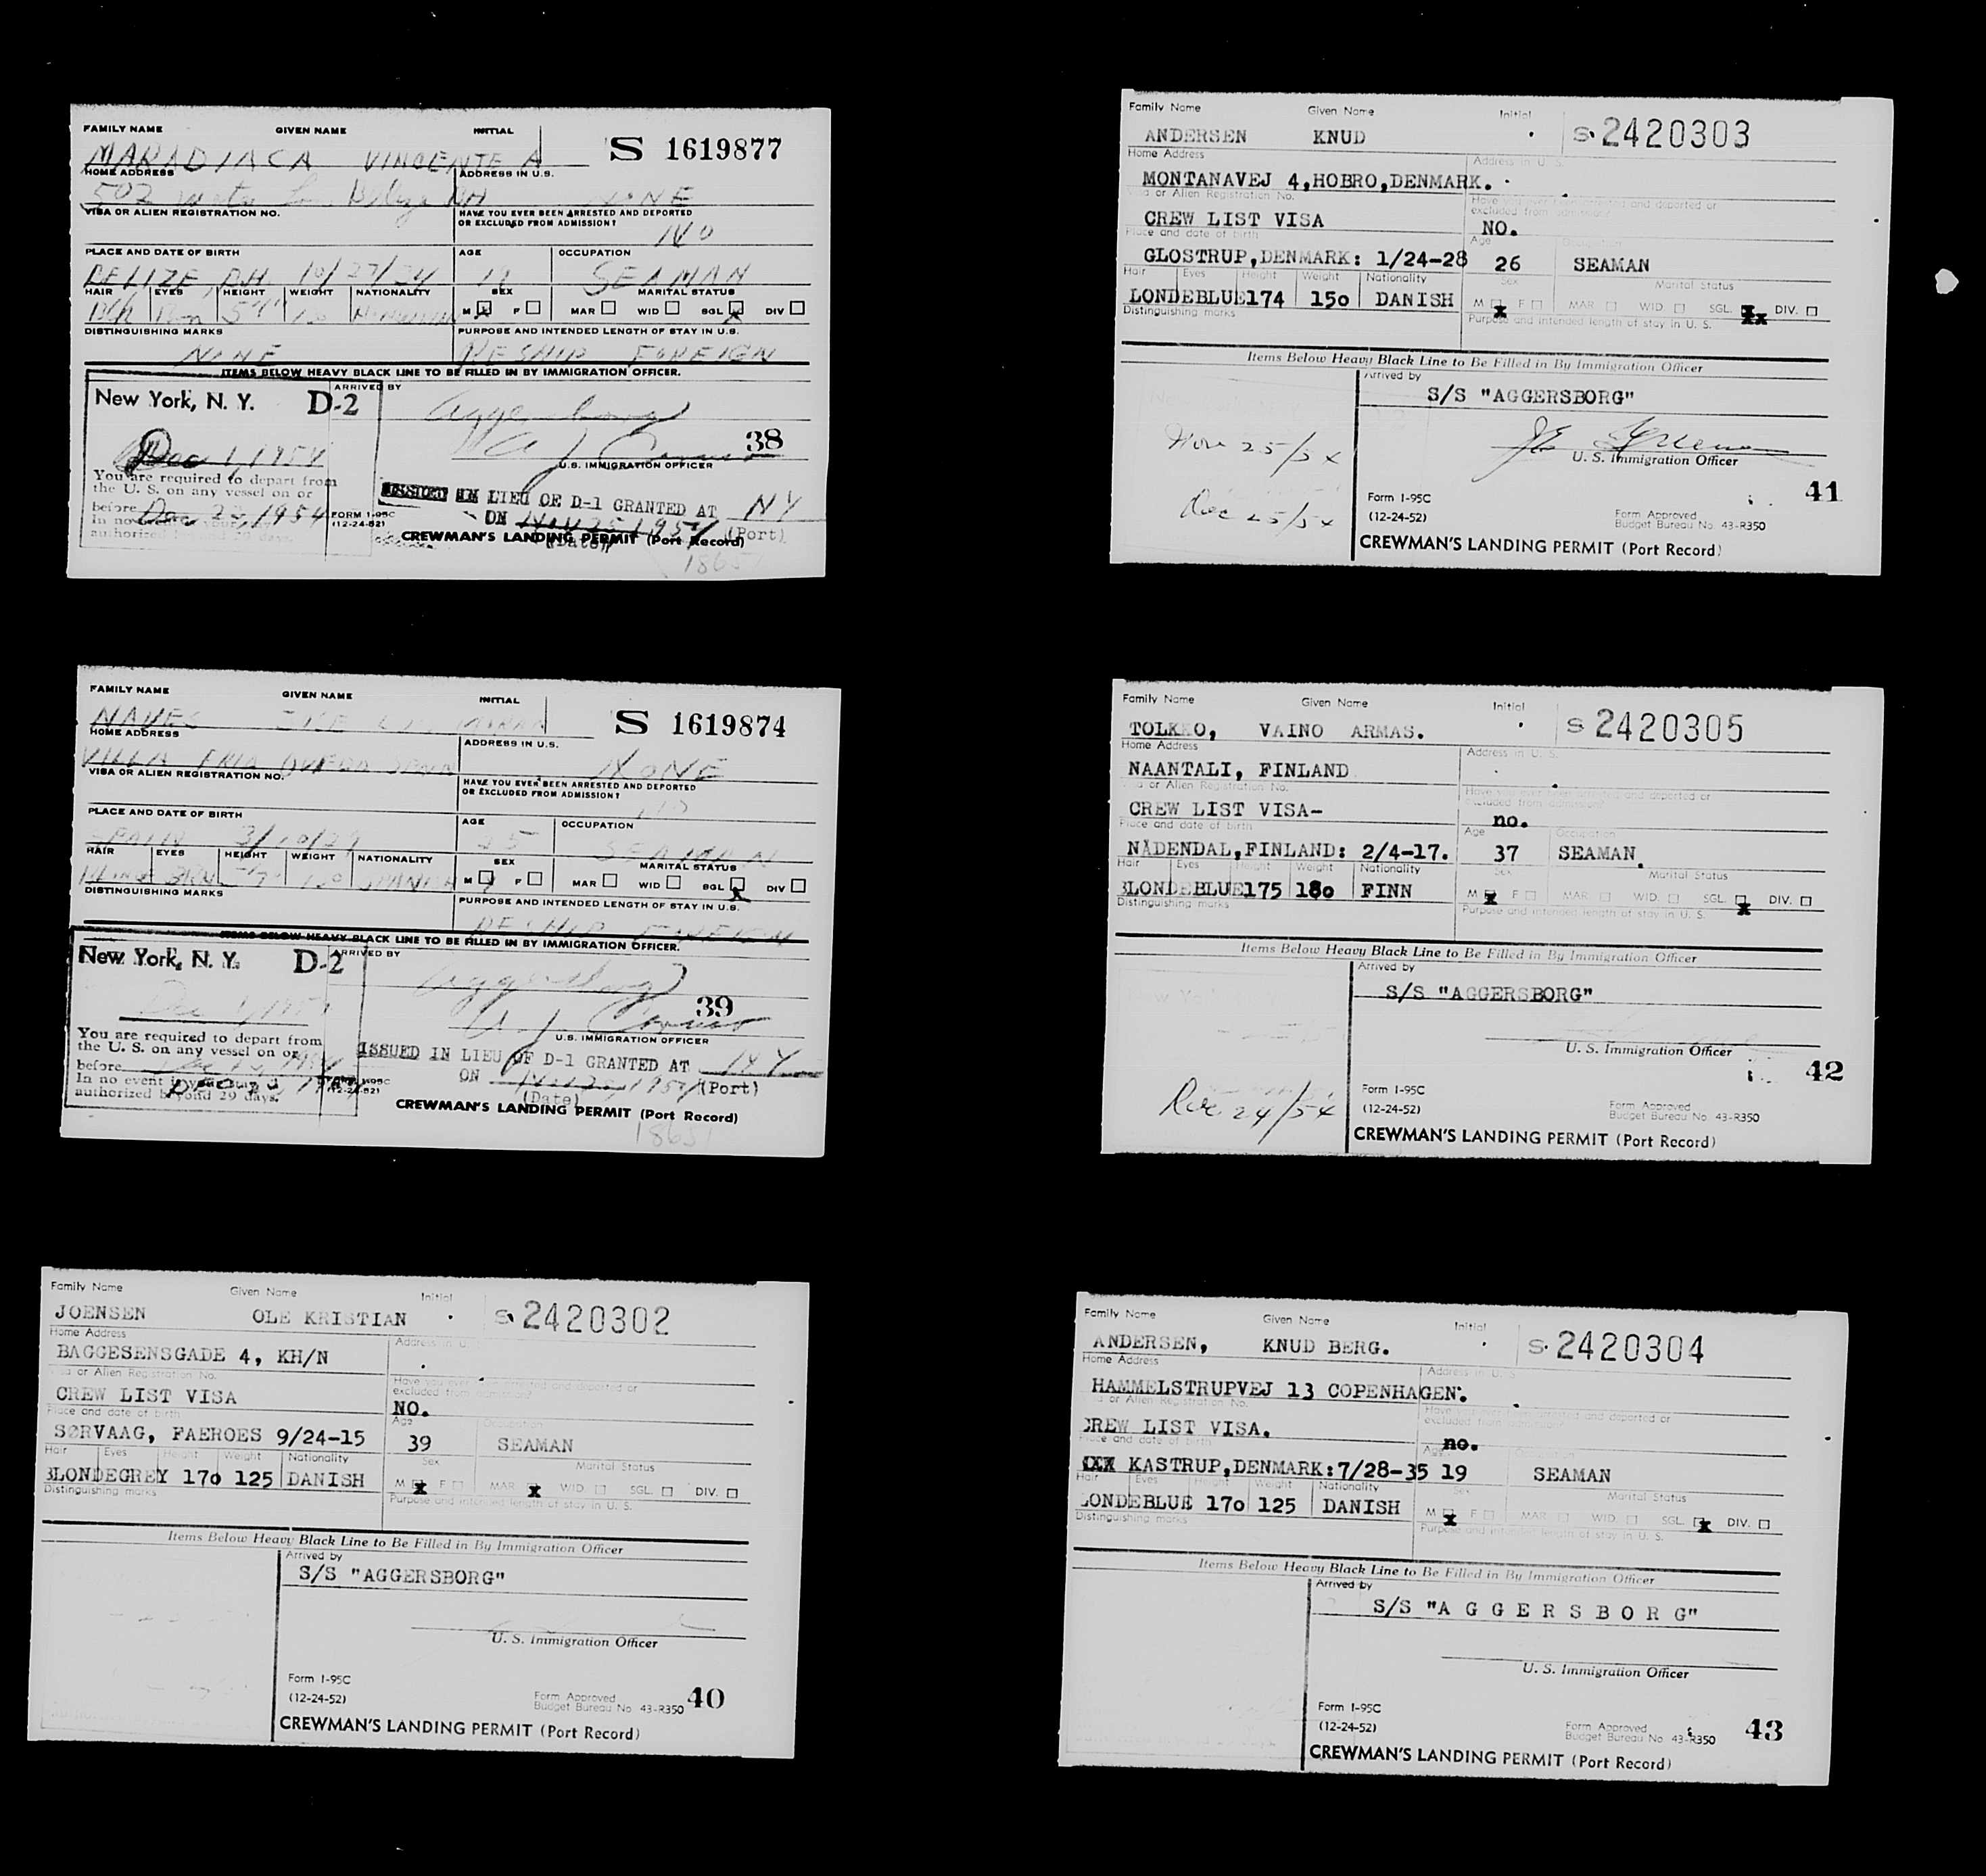 FAMILY NAME GIVEN NAME INITIAL
MARADIACA VINCENTE A S 1619877
HOME ADDRESS ADDRESS IN U.S.
502 Belize BH NONE
VISA OR ALIEN REGISTRATION NO. HAVE YOU EVER BEEN ARRESTED AND DEPORTED
OR EXCLUDED FROM ADMISSION?
No
PLACE AND DATE OF BIRTH AGE OCCUPATION
BELIZE, B.H. 10/27/34 SEAMAN
HAIR EYES HEIGHT WEIGHT NATIONALITY SEX MARITAL STATUS
Blk M F MAR WID SGL DIV
DISTINGUISHING MARKS PURPOSE AND INTENDED LENGTH OF STAY IN U.S.
NONE RESHIP FOREIGN
ITEMS BELOW HEAVY BLACK LINE TO BE FILLED IN BY IMMIGRATION OFFICER.
New York, N. Y. D-2 ARRIVED BY
Aggersborg
Dec 1, 1954 38
U.S. IMMIGRATION OFFICER
You are required to depart from
the U. S. on any vessel on or
before Dec 23, 1954
In no event
authorized beyond 29 days.
FORM I-95C
(12-24-52)
ISSUED IN LIEU OF D-1 GRANTED AT NY
ON Nov 25 1954 (Port)
(Date)
CREWMAN'S LANDING PERMIT (Port Record)
FAMILY NAME GIVEN NAME INITIAL
S 1619874
HOME ADDRESS ADDRESS IN U.S.
VILLA NONE
VISA OR ALIEN REGISTRATION NO. HAVE YOU EVER BEEN ARRESTED AND DEPORTED
OR EXCLUDED FROM ADMISSION?
NO
PLACE AND DATE OF BIRTH AGE OCCUPATION
SPAIN 3/10/29 SEAMAN
HAIR EYES HEIGHT WEIGHT NATIONALITY SEX MARITAL STATUS
BRN SPANISH M F MAR WID SGL DIV
DISTINGUISHING MARKS PURPOSE AND INTENDED LENGTH OF STAY IN U.S.
RESHIP FOREIGN
ITEMS BELOW HEAVY BLACK LINE TO BE FILLED IN BY IMMIGRATION OFFICER.
New York, N. Y. D-2 ARRIVED BY
Aggersborg
Dec 1, 1954 39
U.S. IMMIGRATION OFFICER
You are required to depart from
the U. S. on any vessel on or
before
In no event is your stay
authorized beyond 29 days.
ISSUED IN LIEU OF D-1 GRANTED AT NY
ON 1954 (Port)
(Date)
CREWMAN'S LANDING PERMIT (Port Record)
Family Name Given Name Initial
JOENSEN OLE KRISTIAN S 2420302
Home Address Address in U.S.
BAGGESENSGADE 4, KH/N
Visa or Alien Registration No. Have you ever been arrested and deported or
excluded from admission?
CREW LIST VISA NO.
Place and date of birth Age Occupation
SØRVAAG, FAEROES 9/24-15 39 SEAMAN
Hair Eyes Height Weight Nationality Sex Marital Status
BLONDE GREY 170 125 DANISH M F MAR WID. SGL. DIV.
Distinguishing marks Purpose and intended length of stay in U. S.
Items Below Heavy Black Line to Be Filled in By Immigration Officer
Arrived by
S/S "AGGERSBORG"
U. S. Immigration Officer
Form I-95C
(12-24-52)
Form Approved
Budget Bureau No. 43-R350 40
CREWMAN'S LANDING PERMIT (Port Record)
Family Name Given Name Initial
ANDERSEN KNUD S 2420303
Home Address Address in U. S.
MONTANAVEJ 4,HOBRO,DENMARK.
Visa or Alien Registration No. Have you ever been arrested and deported or
excluded from admission?
CREW LIST VISA NO.
Place and date of birth Age Occupation
GLOSTRUP,DENMARK: 1/24-28 26 SEAMAN
Hair Eyes Height Weight Nationality Sex Marital Status
LONDEBLUE174 150 DANISH M F MAR WID SGL. DIV.
Distinguishing marks Purpose and intended length of stay in U. S.
Items Below Heavy Black Line to Be Filled in By Immigration Officer
Arrived by
S/S "AGGERSBORG"
Nov 25/54
U. S. Immigration Officer
Dec 25/54
Form I-95C
(12-24-52)
Form Approved
Budget Bureau No. 43-R350 41
CREWMAN'S LANDING PERMIT (Port Record)
Family Name Given Name Initial
TOLKKO, VAINO ARMAS. S 2420305
Home Address Address in U. S.
NAANTALI, FINLAND
Visa or Alien Registration No. Have you ever been arrested and deported or
excluded from admission?
CREW LIST VISA- no.
Place and date of birth Age Occupation
NÅDENDAL,FINLAND: 2/4-17. 37 SEAMAN.
Hair Eyes Height Weight Nationality Sex Marital Status
BLONDEBLUE175 180 FINN M F MAR WID. SGL. DIV.
Distinguishing marks Purpose and intended length of stay in U. S.
Items Below Heavy Black Line to Be Filled in By Immigration Officer
Arrived by
S/S "AGGERSBORG"
U. S. Immigration Officer
42
Dec 24/54
Form I-95C
(12-24-52)
Form Approved
Budget Bureau No. 43-R350
CREWMAN'S LANDING PERMIT (Port Record)
Family Name Given Name Initial
ANDERSEN, KNUD BERG. S 2420304
Home Address Address in U. S.
HAMMELSTRUPVEJ 13 COPENHAGEN.
Visa or Alien Registration No. Have you ever been arrested and deported or
excluded from admission?
CREW LIST VISA. no.
Place and date of birth Age Occupation
XXX KASTRUP,DENMARK:7/28-35 19 SEAMAN
Hair Eyes Height Weight Nationality Sex Marital Status
LONDEBLUE 170 125 DANISH M F MAR WID. SGL. DIV.
Distinguishing marks Purpose and intended length of stay in U. S.
Items Below Heavy Black Line to Be Filled in By Immigration Officer
Arrived by
S/S "A G G E R S B O R G"
U. S. Immigration Officer
Form I-95C
(12-24-52)
Form Approved
Budget Bureau No. 43-R350 43
CREWMAN'S LANDING PERMIT (Port Record)